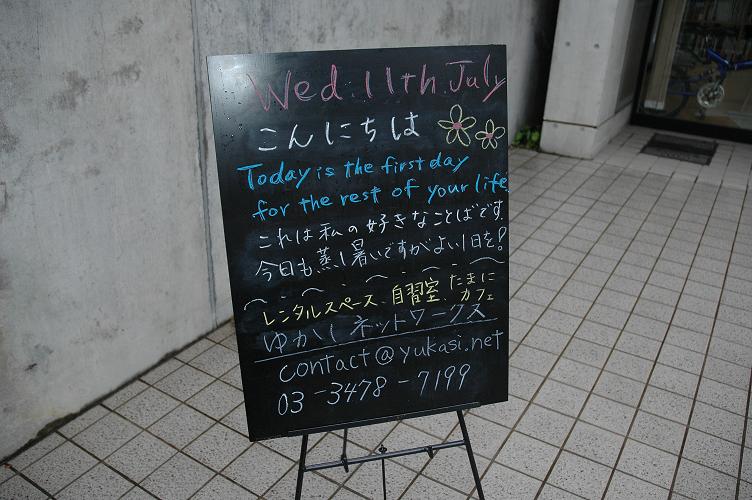 Wed. 11th. July
こんにちは
Today is the first day
for the rest of your life.
これは私の好きなことばです.
今日も蒸し暑いですがよい1日を!
レンタルスペース、自習室、たまにカフェ
ゆかしネットワークス
contact@yukasi.net
03-3478-7199